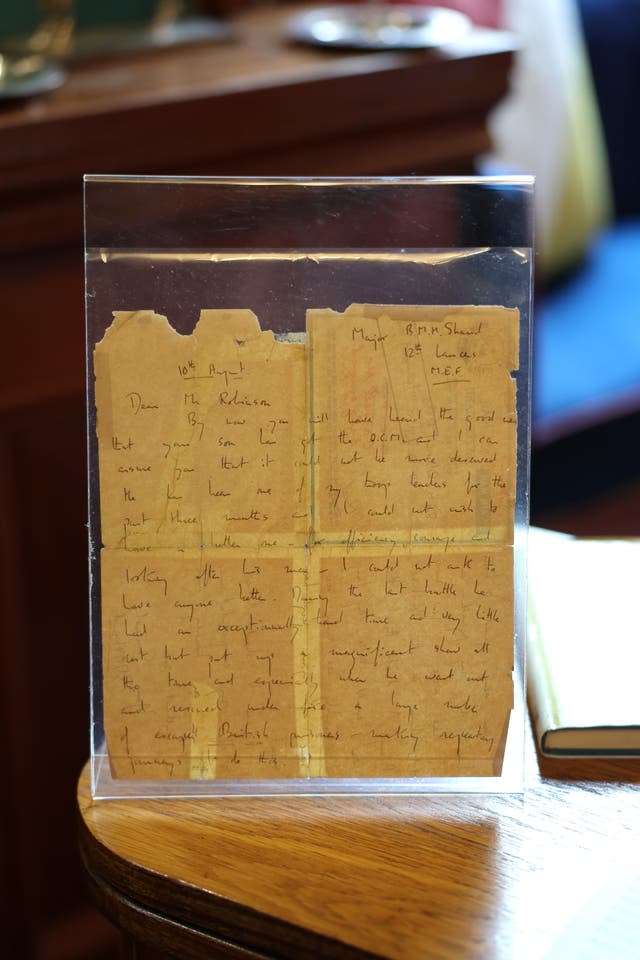 Major B.M.H. Shand
12th Lancers
M.E.F
10th August.
Dear Mr Robinson
By now you will have heard the good news
that your son has got the D.C.M. and I can
assure you that it could not be more deserved
He has been one of my troop leaders for the
past three months and I could not wish to
have a better one – for efficiency, courage and
looking after his men – I could not ask to
have anyone better. During the last battle he
had an exceptionally hard time and very little
rest but put up a magnificent show all
the time and especially when he went out
and rescued under fire a large number
of escaped British prisoners – making repeated
journeys to do this.